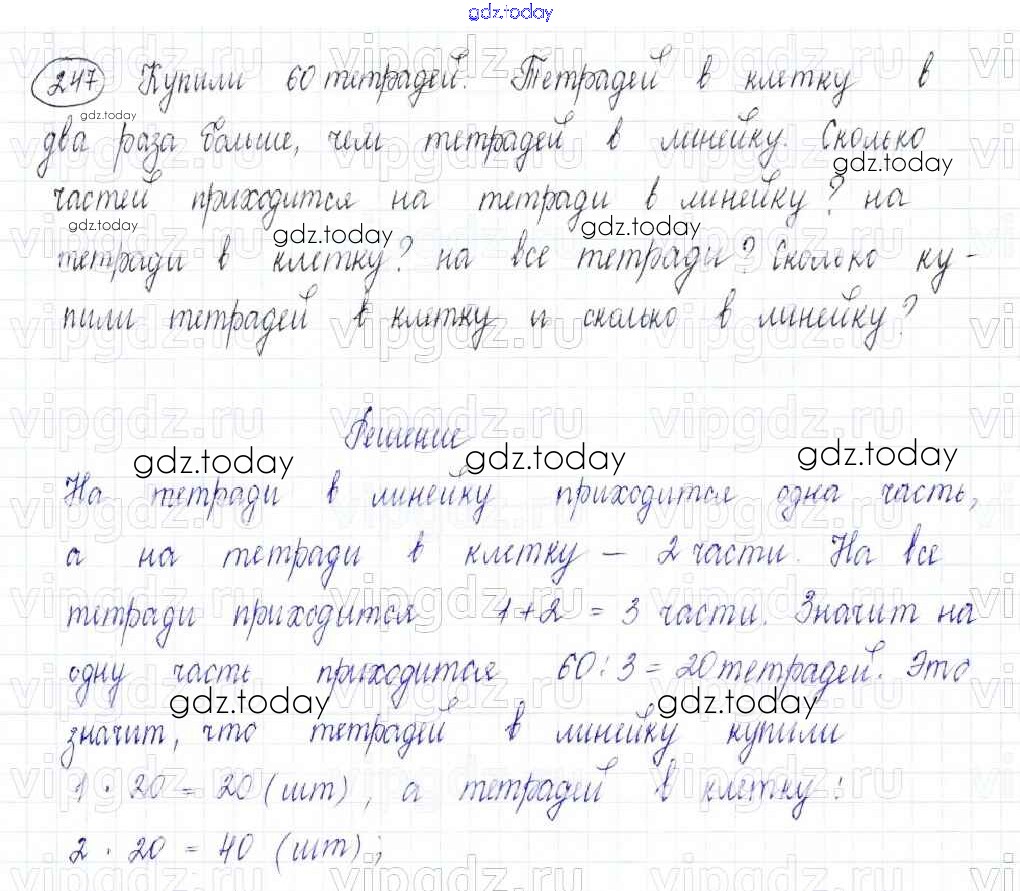 gdz.today
247 Купили 60 тетрадей. Тетрадей в клетку в
два раза больше, чем тетрадей в линейку. Сколько
частей приходится на тетради в линейку? на
тетради в клетку? на все тетради? Сколько ку-
пили тетрадей в клетку и сколько в линейку?
Решение
На тетради в линейку приходится одна часть,
а на тетради в клетку – 2 части. На все
тетради приходится 1+2 = 3 части. Значит на
одну часть приходится 60:3=20 тетрадей. Это
значит, что тетрадей в линейку купили
1 · 20 = 20 (шт), а тетрадей в клетку:
2 · 20 = 40 (шт);